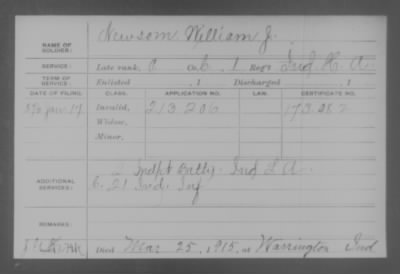 NAME OF SOLDIER: Newsom William J.
SERVICE: Late rank, Co. 1 Reg't Ind. H. A.
TERM OF SERVICE: Enlisted , 1 Discharged , 1
DATE OF FILING. CLASS. APPLICATION NO. LAW. CERTIFICATE NO.
Invalid, 213 206 173 082
Widow,
Minor,
ADDITIONAL SERVICES: 2 Indpt Batty. Ind L A.
21 Ind. Inf
REMARKS:
Died Mar 25, 1915, at Warrington Ind